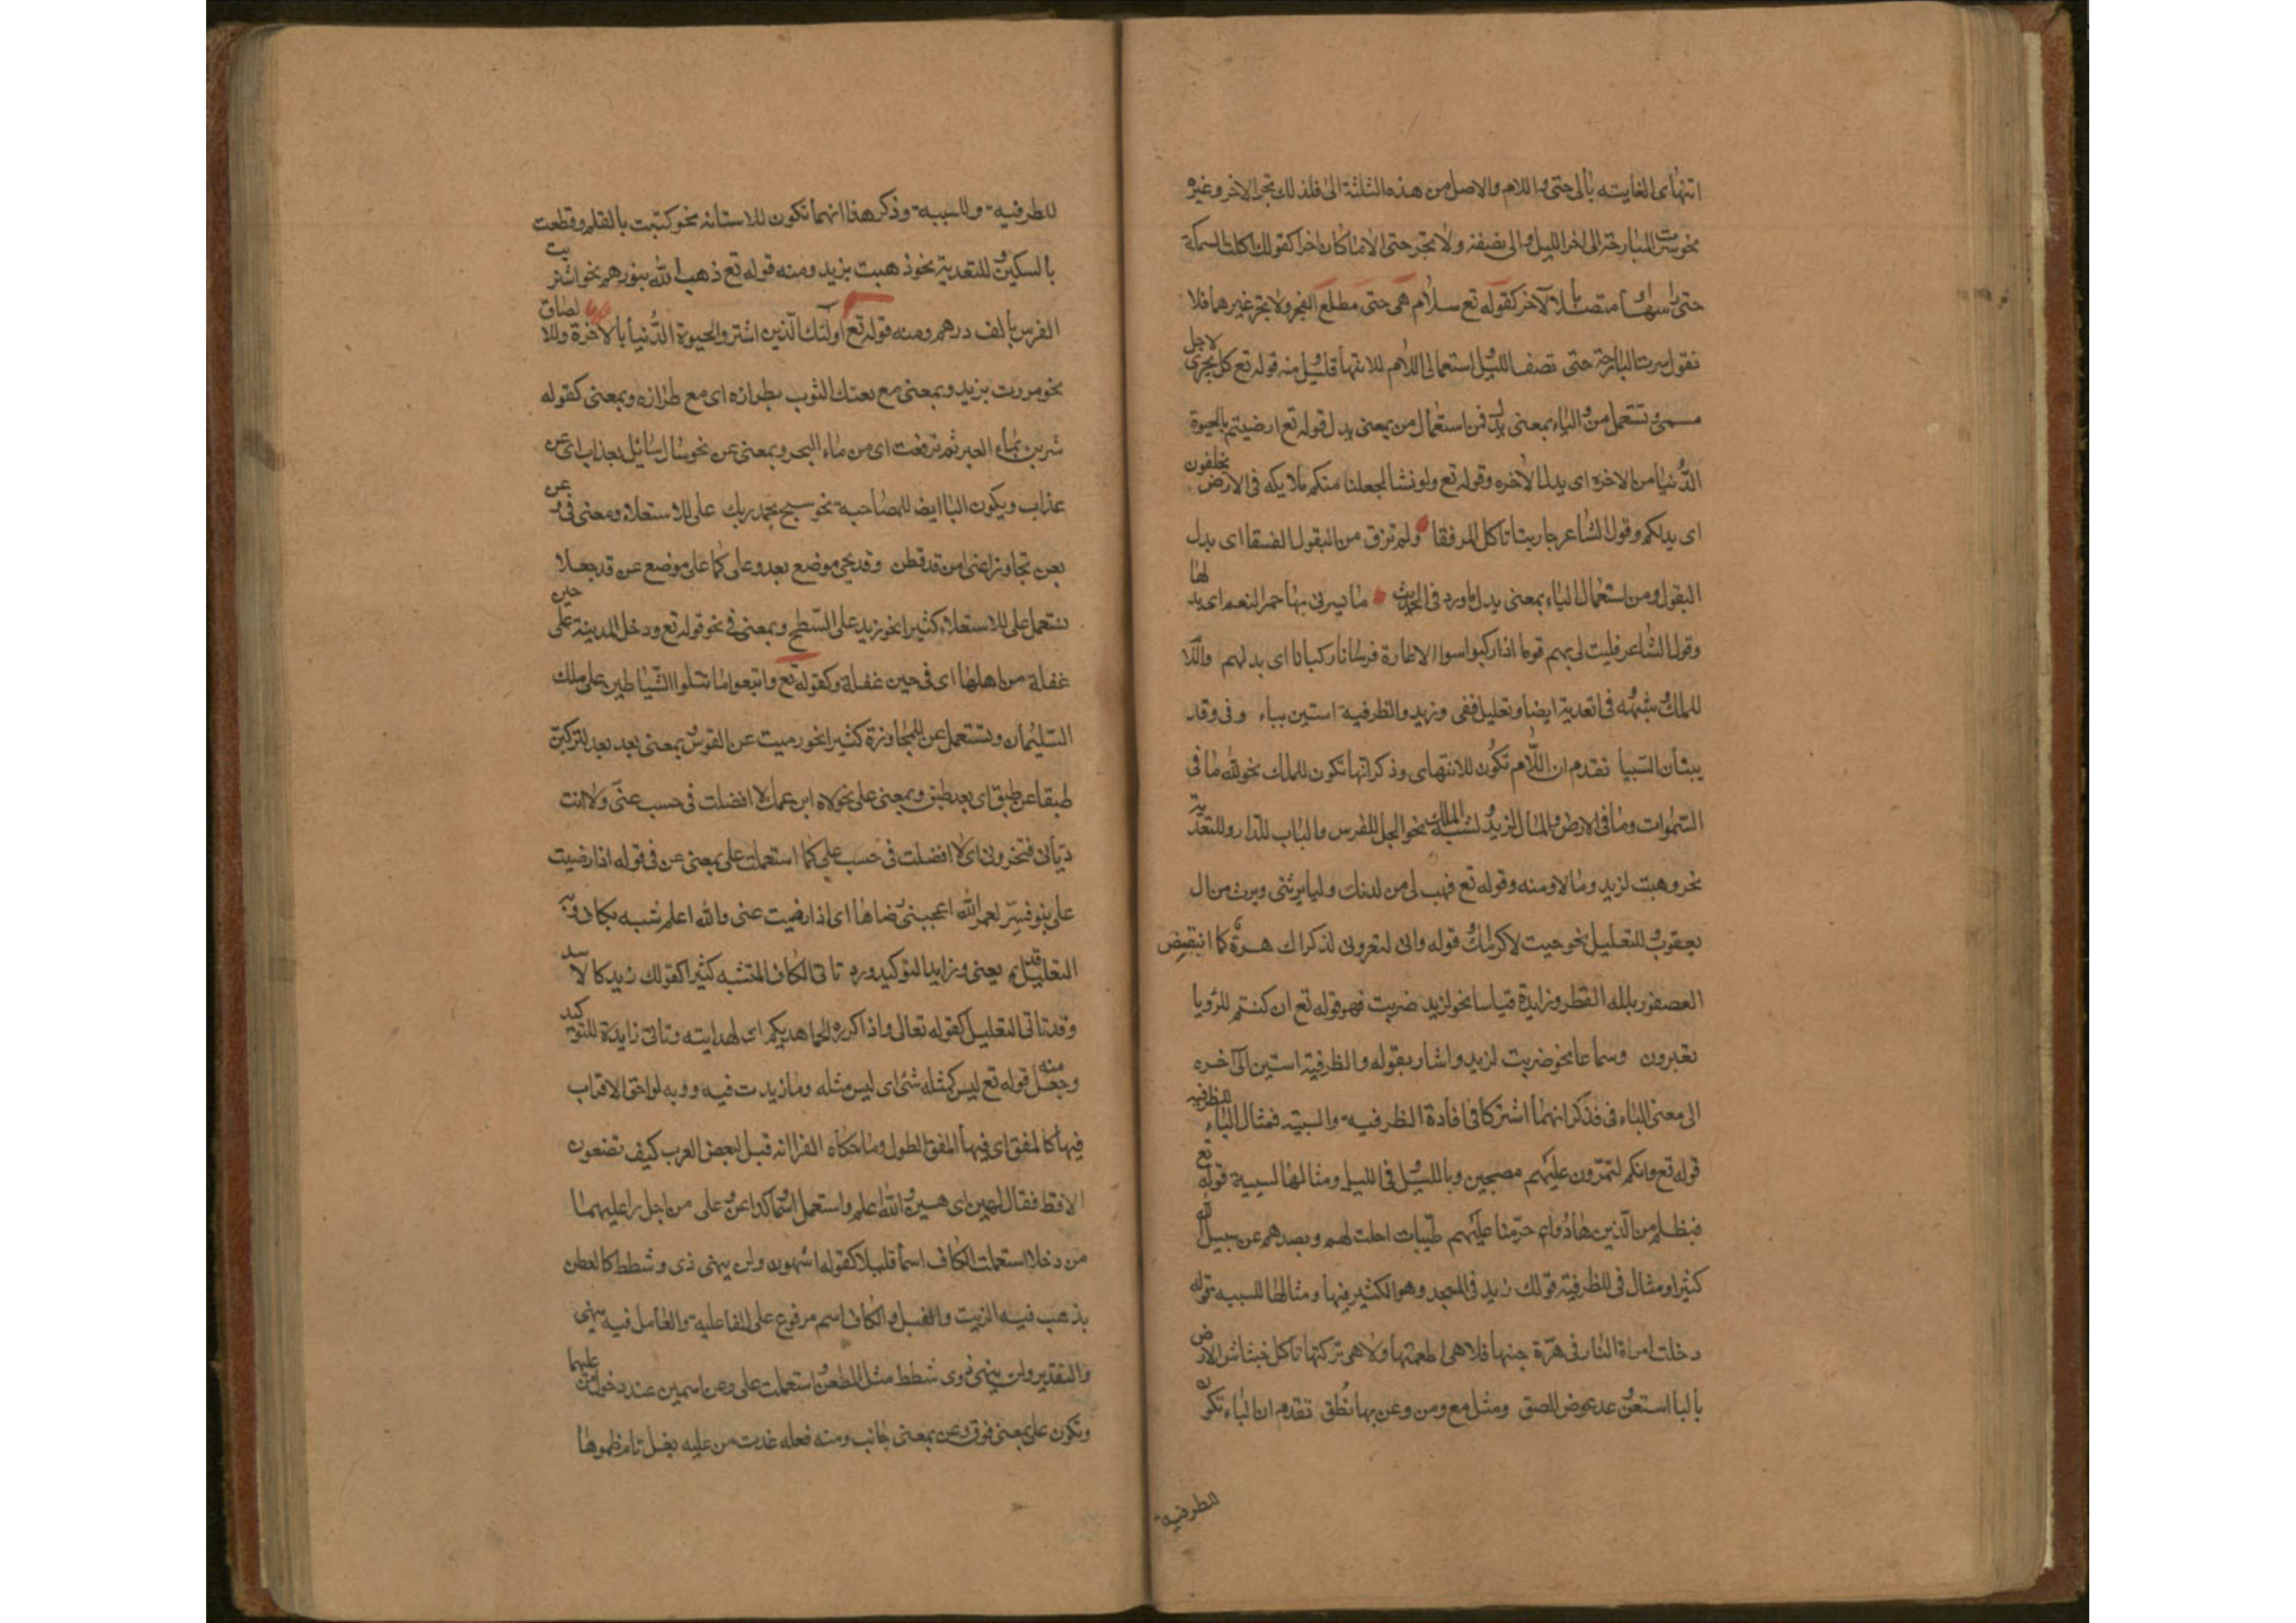 انتهاى الغايته بالى حتى و اللام والاصل من هذه الثلثة الى فلذلك تجر الاخر وغيره
نحو سرت البارحة الى اخر الليل و الى نصفه ولا تجر حتى الا ما كان اخرا كقولك اكلت السمكة
حتى راسها او متصلا بالآخر كقوله تع سلام هى حتى مطلع الفجر ولا تجر غيرهما فلا
تقول سرت البارحة حتى نصف الليل و استعمال اللام للانتهأ قليل و منه قوله تع كل يجرى لاجل
مسمى و تستعمل من و الياء بمعنى بدل فمن استعمال من بمعنى بدل قوله تع ارضيتم بالحيوة
الدُّنيا من الاخره اى بدل الآخره وقوله تع ولو نشا لجعلنا منكم ملايكه فى الارض يخلفون
اى بدلكم وقول الشاعر جارية لم تاكل المرفقا ولم تزق من البقول الفستقا اى بدل
البقول ومن استعمال الباء بمعنى بدل ما ورد فى الحديث ما يسرنى بها حمر النعم اى بدلها
وقول الشاعر فليت لى بهم قوما اذا ركبوا اسوا الاغارة فرسانا ركبانا اى بدلهم واللا
للملك و شبهه فى تعدية ايضا و تعليل قفى و زيد والظرفية استبن ببا و فى وقد
يبينان السببا تقدم ان اللَّام تكون للانتهاى وذكر انها تكون للملك نحو لله ما فى
السموات وما فى الارض و المال لزيد و لشبه الملك نحو الجل للفرس و الباب للدار و للتعدية
نحو وهبت لزيد و مالا و منه وقوله تع فهب لى من لدنك وليا يرثنى ويرث من ال
يعقوب و للتعليل نحو جيت لاكرامك و قوله وانى لتعرونى لذكراك هزة كما انتفض
العصفور بلله القطر و زايدة قياسا نحو لزيد ضربت فهو قوله تع ان كنتم للرؤيا
تعبرون وسماعا نحو ضربت لزيد واشار بقوله والظرفية استبن الى آخره
الى معنى الباء فى فذكر انهما اشتركا فى افادة الظرفية والسببيه فمثال الباء للظرفيه
قوله تع وانكم لتمرّون عليهم مصبحين و بالليل و فى الليل ومثالها لسببية قوله تع
فبظلم من الّذين هادُوا حرّمنا عليهم طيّبات احلت لهم وبصدهم عن سبيل الله
كثيرا و مثال فى للظرفية قولك زيد فى المسجد وهو الكثير فيها و مثالها للسببيه قوله
دخلت امراة النار فى هرّة حبستها فلا هى اطعمتها ولا هى تركتها تاكل من خشاش الارض
بالبا استعن و عد عوض الصق ومثل مع ومن وعن بها نُطق تقدم ان الباء تكون
للظرفية
للظرفية وللسببية وذكر هنا انهما تكون للاستعانه نحو كتبت بالقلم وقطعت
بالسكين و للتعدية نحو ذهبت بزيد ومنه قوله تع ذهب الله بنورهم نحو اشتريت
الفرس بالف درهم ومنه قوله تع اولئك الّذين اشتروا الحيوة الدُّنيا بالآخرة وللالصاق
نحو مررت بزيد وبمعنى مع بعتك الثوب بطرازه اى مع طرازه وبمعنى كقوله
شربن بماء البحر ثم ترفعت اى من ماء البحر وبمعنى عن نحو سال سائل بعذاب اى عن
عذاب ويكون البا ايضا للمصاحبة نحو سبح بحمد ربك على للاستعلاء ومعنى فى و عن
بعن تجاوزا عنى من قد فطن وقد تجى موضع بعد و على كما على موضع عن قد جعلا
تستعمل على للاستعلاء كثيرا نحو زيد على السّطح وبمعنى فى نحو قوله تع ودخل المدينة على حين
غفلة من اهلها اى فى حين غفلة و كقوله تع واتبعوا ما تتلوا الشياطين على ملك
السليمان و تستعمل عن للمجاوزة كثيرا نحو رميت عن القوس و بمعنى بعد نحو لتركبن
طبقا عن طبق اى بعد طبق و بمعنى على نحو لاه ابن عمك لا افضلت فى حسب عنى ولا انت
ديّانى فتخزونى اى لا افضلت فى حسب على كما استعملت على بمعنى عن فى قوله اذا رضيت
على بنو قشير لعمر الله اعجبنى رضاها اى اذا رضيت عنى والله اعلم شبه بكاف و به
التعليل قد يعنى و زايدا لتوكيد ورد تاتى الكاف للتشبه كثيرا كقولك زيد كالاسد
وقد تاتى للتعليل كقوله تعالى واذكروه كما هديكم اى لهدايته وتاتى زايدة للتوكيد
وجعل منه قوله تع ليس كمثله شئ اى ليس مثله و ما زيدت فيه رووبه لواحق الاقراب
فيها كالمقق اى فيها المقق الطول وما حكاه الفرا انه قيل لبعض العرب كيف تصنعون
الاقط فقال كهين اى هين و الله اعلم واستعمل اسما و كذا عن و على من اجل ذا عليهما
من دخلا استعملت الكاف اسما قليلا كقوله اتنهون ولن ينهى ذوى شطط كالطعن
يذهب فيه الزيت والفتل و الكاف اسم مرفوع على الفاعلية والعامل فيه ينهى
والتقدير ولن ينهى ذوى شطط مثل الطعن و استعملت على وعن اسمين عند دخول من عليهما
وتكون على بمعنى فوق وعن بمعنى جانب ومنه فعله غدت من عليه بعد ما تم ظموها